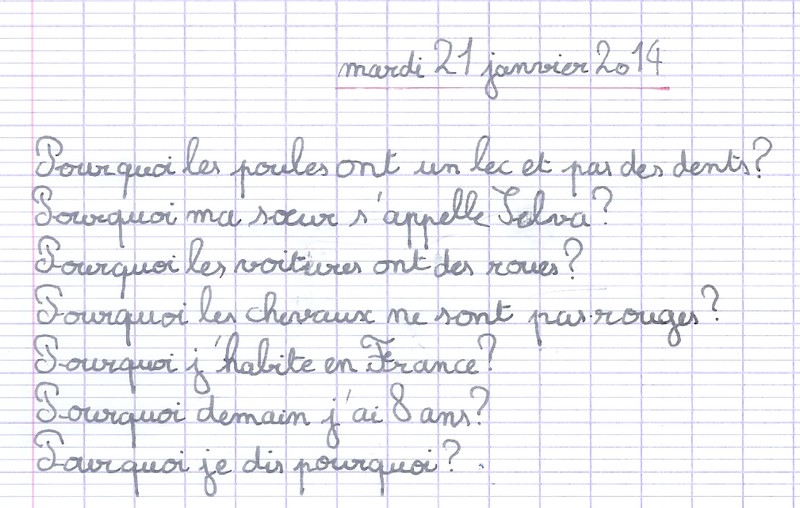 mardi 21 janvier 2014
Pourquoi les poules ont un bec et pas des dents?
Pourquoi ma sœur s'appelle Selva?
Pourquoi les voitures ont des roues?
Pourquoi les chevaux ne sont pas rouges?
Pourquoi j'habite en France?
Pourquoi demain j'ai 8 ans?
Pourquoi je dis pourquoi?.